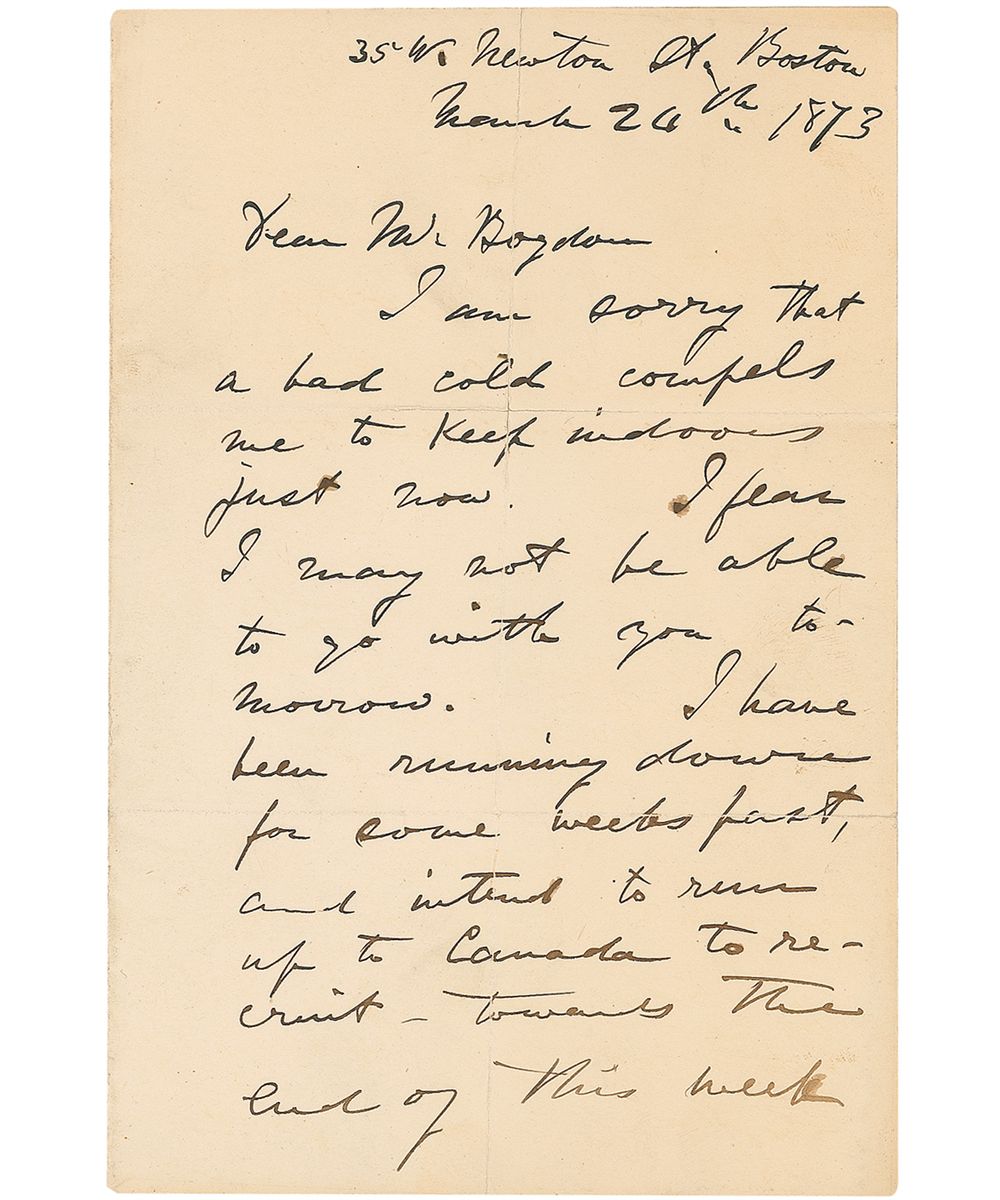 35 W. Newton St., Boston
March 24th 1873
Dear Mr. Bogdon
I am sorry that
a bad cold compels
me to keep indoors
just now. I fear
I may not be able
to go with you to-
morrow. I have
been running down
for some weeks past,
and intend to run
up to Canada to re-
cruit – towards the
end of this week